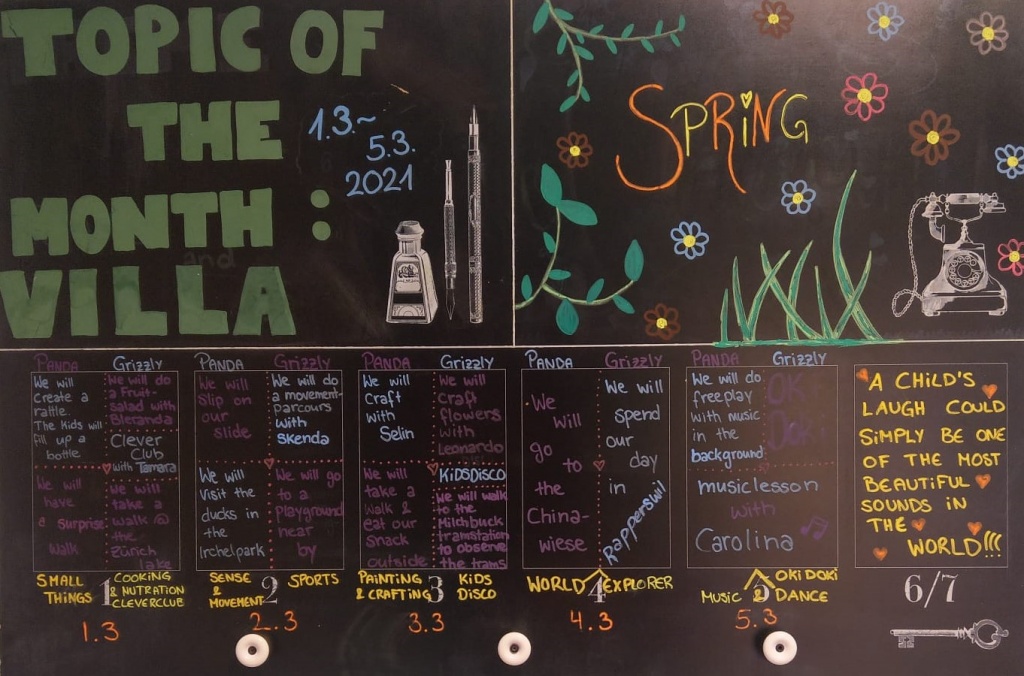 TOPIC OF
THE
MONTH :
VILLA
1.3.~
5.3.
2021
SPRING
PANDA
We will
create a
rattle.
The Kids will
fill up a
bottle
We will
have
a surprise
walk
Grizzly
We will do
a Fruit-
salad with
Bleranda
Clever
Club
with Tamara
We will
take a
walk @
the
Zürich
lake
SMALL
THINGS
1
COOKING
& NUTRATION
CLEVERCLUB
1.3
PANDA
We will
slip on
our
slide
We will
visit the
ducks in
the
Irchelpark
Grizzly
We will do
a movement-
parcours
with
Skenda
We will go
to a
playground
near
by
SENSE
&
MOVEMENT
2
SPORTS
2.3
PANDA
We will
craft
with
Selin
We will
take a
walk &
eat our
snack
outside
Grizzly
We will
craft
flowers
with
Leonardo
KiDSDisco
We will walk
to the
Milchbuck
tramstation
to observe
the trams
PAINTING
& CRAFTING
3
KiDS
DiSCO
3.3
PANDA
We
will
go
to
the
China-
wiese
Grizzly
We will
spend
our
day
in
Rapperswil
WORLD
4
EXPLORER
4.3
PANDA
We will do
freeplay
with music
in the
background
Grizzly
OK
DOK
music lesson
with
Carolina
MUSIC
5
OKi DOKi
& DANCE
5.3
A CHiLD'S
LAUGH COULD
SiMPLY BE ONE
OF THE MOST
BEAUTiFUL
SOUNDS iN
THE
WORLD!!!
6/7